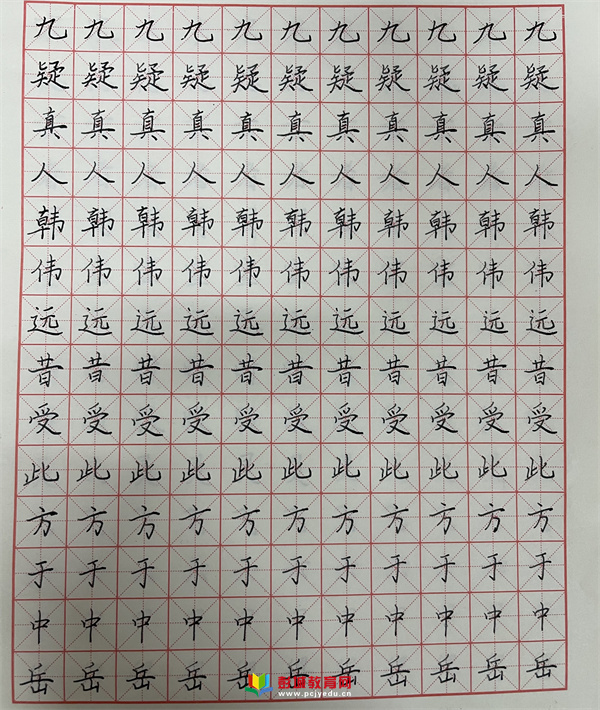 九九九九九九九九九九九
疑疑疑疑疑疑疑疑疑疑疑
真真真真真真真真真真真
人人人人人人人人人人人
韩韩韩韩韩韩韩韩韩韩韩
伟伟伟伟伟伟伟伟伟伟伟
远远远远远远远远远远远
昔昔昔昔昔昔昔昔昔昔昔
受受受受受受受受受受受
此此此此此此此此此此此
方方方方方方方方方方方
于于于于于于于于于于于
中中中中中中中中中中中
岳岳岳岳岳岳岳岳岳岳岳
彭城教育网
www.pcjyedu.cn